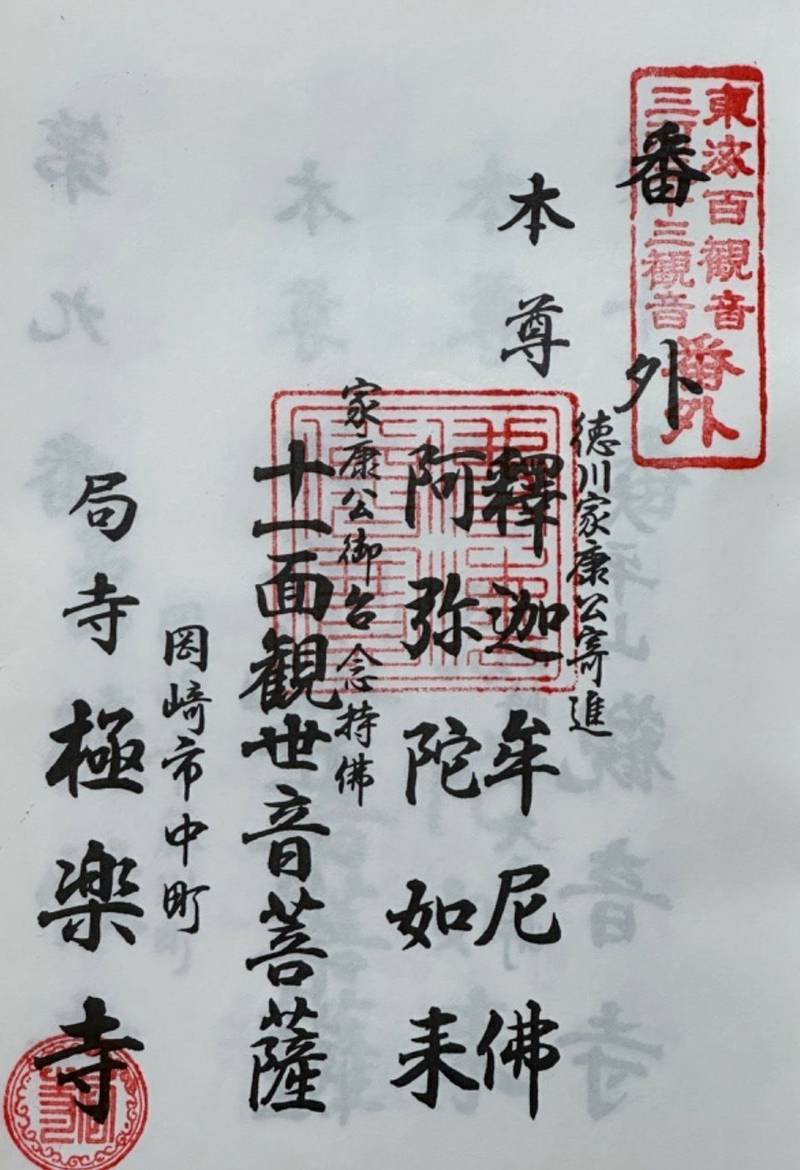 東海百観音
三河三十三観音
番外
番外
本尊
徳川家康公寄進
釋迦牟尼佛
阿弥陀如来
家康公御台念持佛
十一面観世音菩薩
岡崎市中町
局寺極楽寺